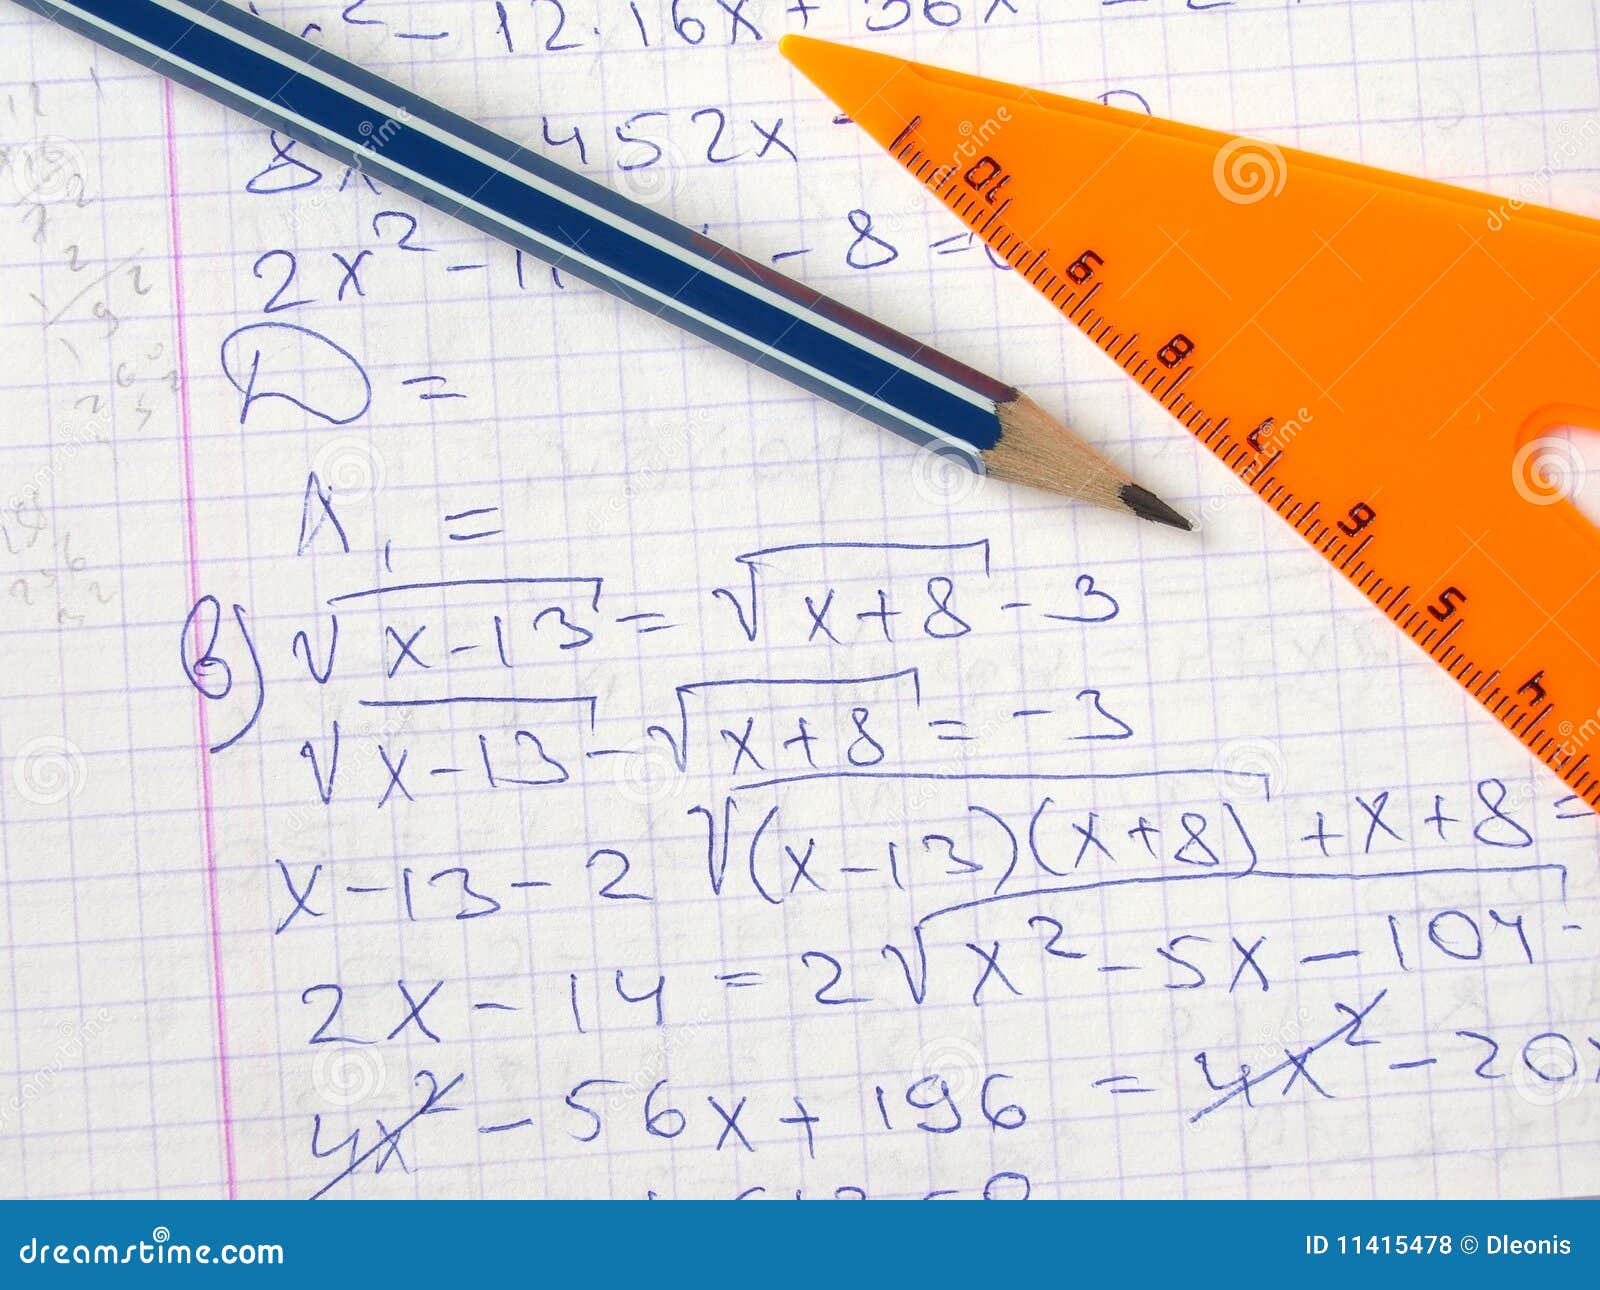 ² - 12.16x + 36x = 2
8x 452x
2x² - 11 - 8 =
D =
X₁ =
в) √(x-13) = √(x+8) - 3
√(x-13) - √(x+8) = -3
x - 13 - 2 √((x-13)(x+8)) + x + 8 =
2x - 14 = 2√(x² - 5x - 104
4x² - 56x + 196 = 4x² - 20x
10
9
8
7
6
5
4
dreamstime.com
ID 11415478 © Dleonis